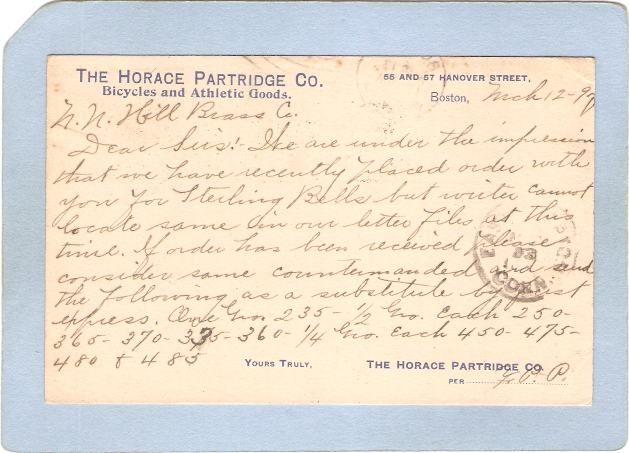 THE HORACE PARTRIDGE CO.
Bicycles and Athletic Goods.
55 AND 57 HANOVER STREET,
Boston, Mch 12-9
N. N. Hill Brass Co.
Dear Sirs! We are under the impression
that we have recently placed order with
you for Sterling Bells but writer cannot
locate same in our letter files at this
time. If order has been received please
consider same countermanded and send
the following as a substitute by first
express. One Gro. 235- 1/2 Gro. Each 250-
365- 370- 335- 360- 1/4 Gro. Each 450- 475-
480 & 485
YOURS TRULY,
THE HORACE PARTRIDGE CO.
PER P. P.
CONN